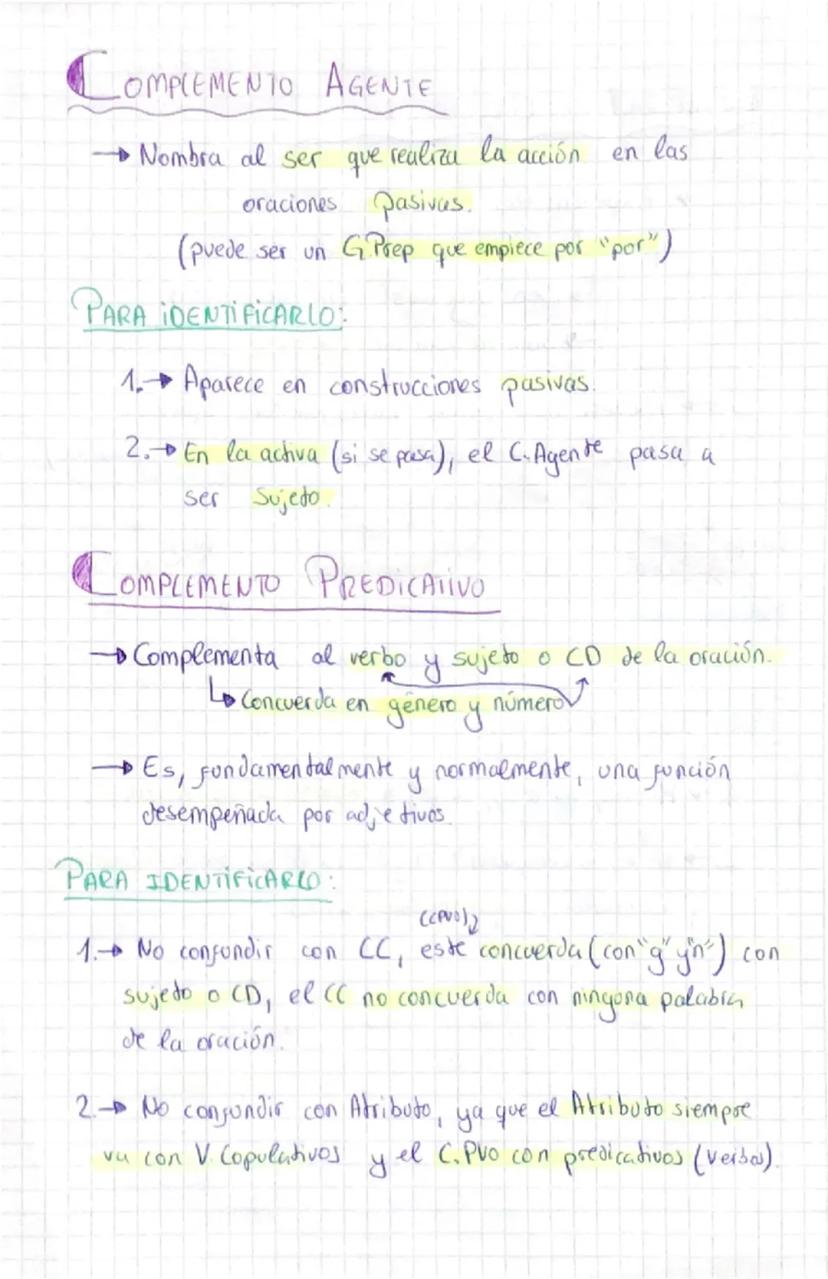 COMPLEMENTO AGENTE
→ Nombra al ser que realiza la acción en las
oraciones pasivas.
(puede ser un G.Prep que empiece por "por")
PARA IDENTIFICARLO:
1.→ Aparece en construcciones pasivas.
2.→ En la activa (si se pasa), el C.Agente pasa a
ser sujeto.
COMPLEMENTO PREDICATIVO
→ Complementa al verbo y sujeto o CD de la oración.
↳ Concuerda en género y número
→ Es, fundamentalmente y normalmente, una función
desempeñada por adjetivos.
PARA IDENTIFICARLO:
(CPVO)
1.→ No confundir con CC, este concuerda (con "g" y "n") con
sujeto o CD, el CC no concuerda con ninguna palabra
de la oración.
2.→ No confundir con Atributo, ya que el Atributo siempre
va con V. Copulativos y el C.PVO con predicativos (verbos).